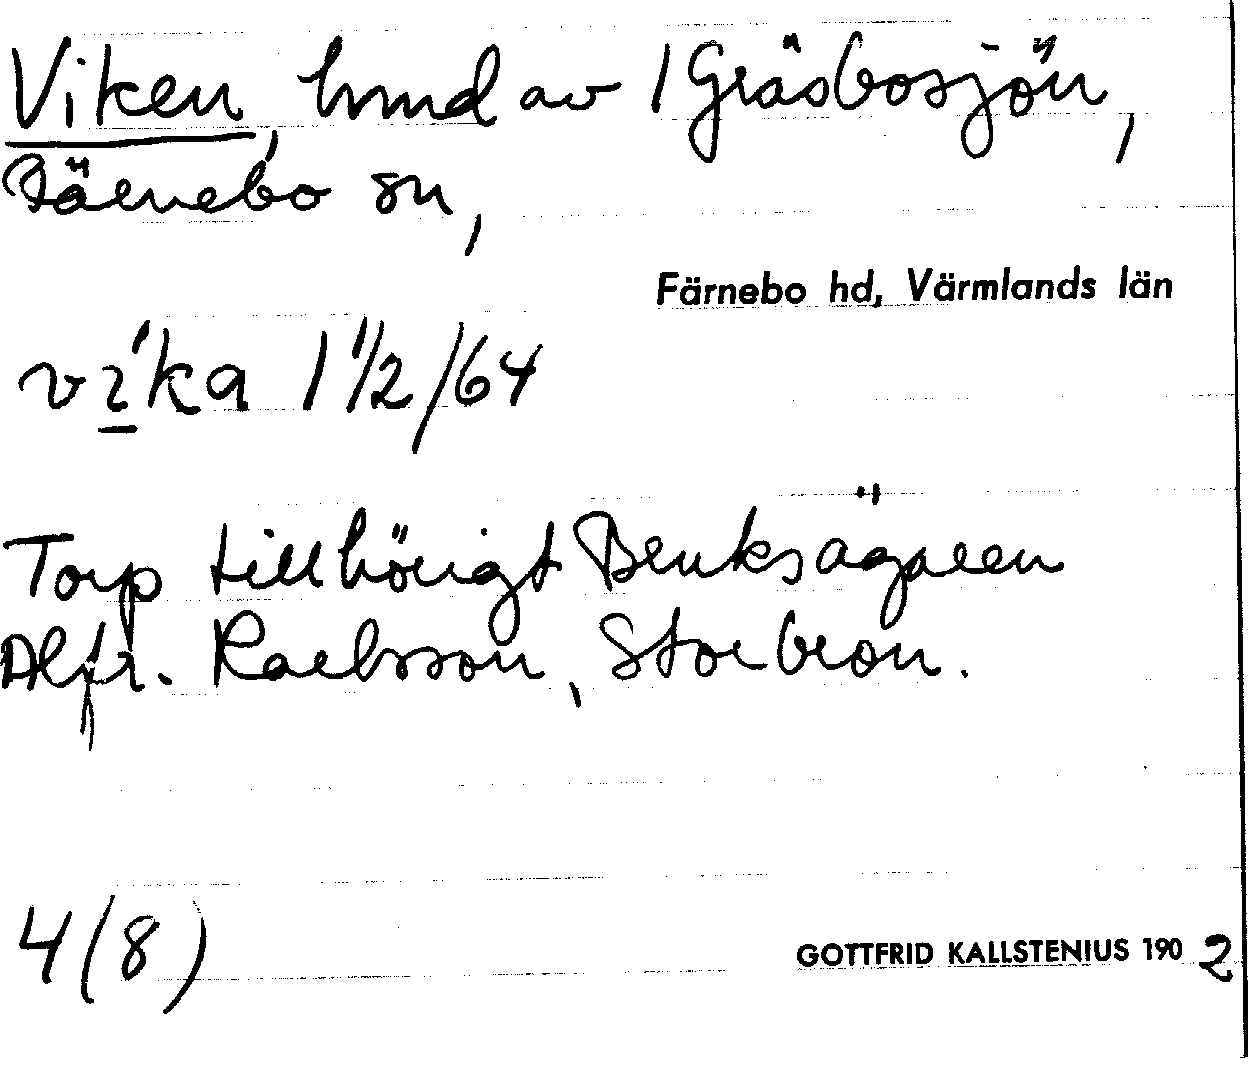 Viken, hmd av 1 Gräsbosjön,
Färnebo sn,
Färnebo hd, Värmlands län
vi'ka 1 1/2/64
Torp tillhörigt Bruksägaren
Alfr. Karlsson, Storbron.
4(8)
GOTTFRID KALLSTENIUS 1902